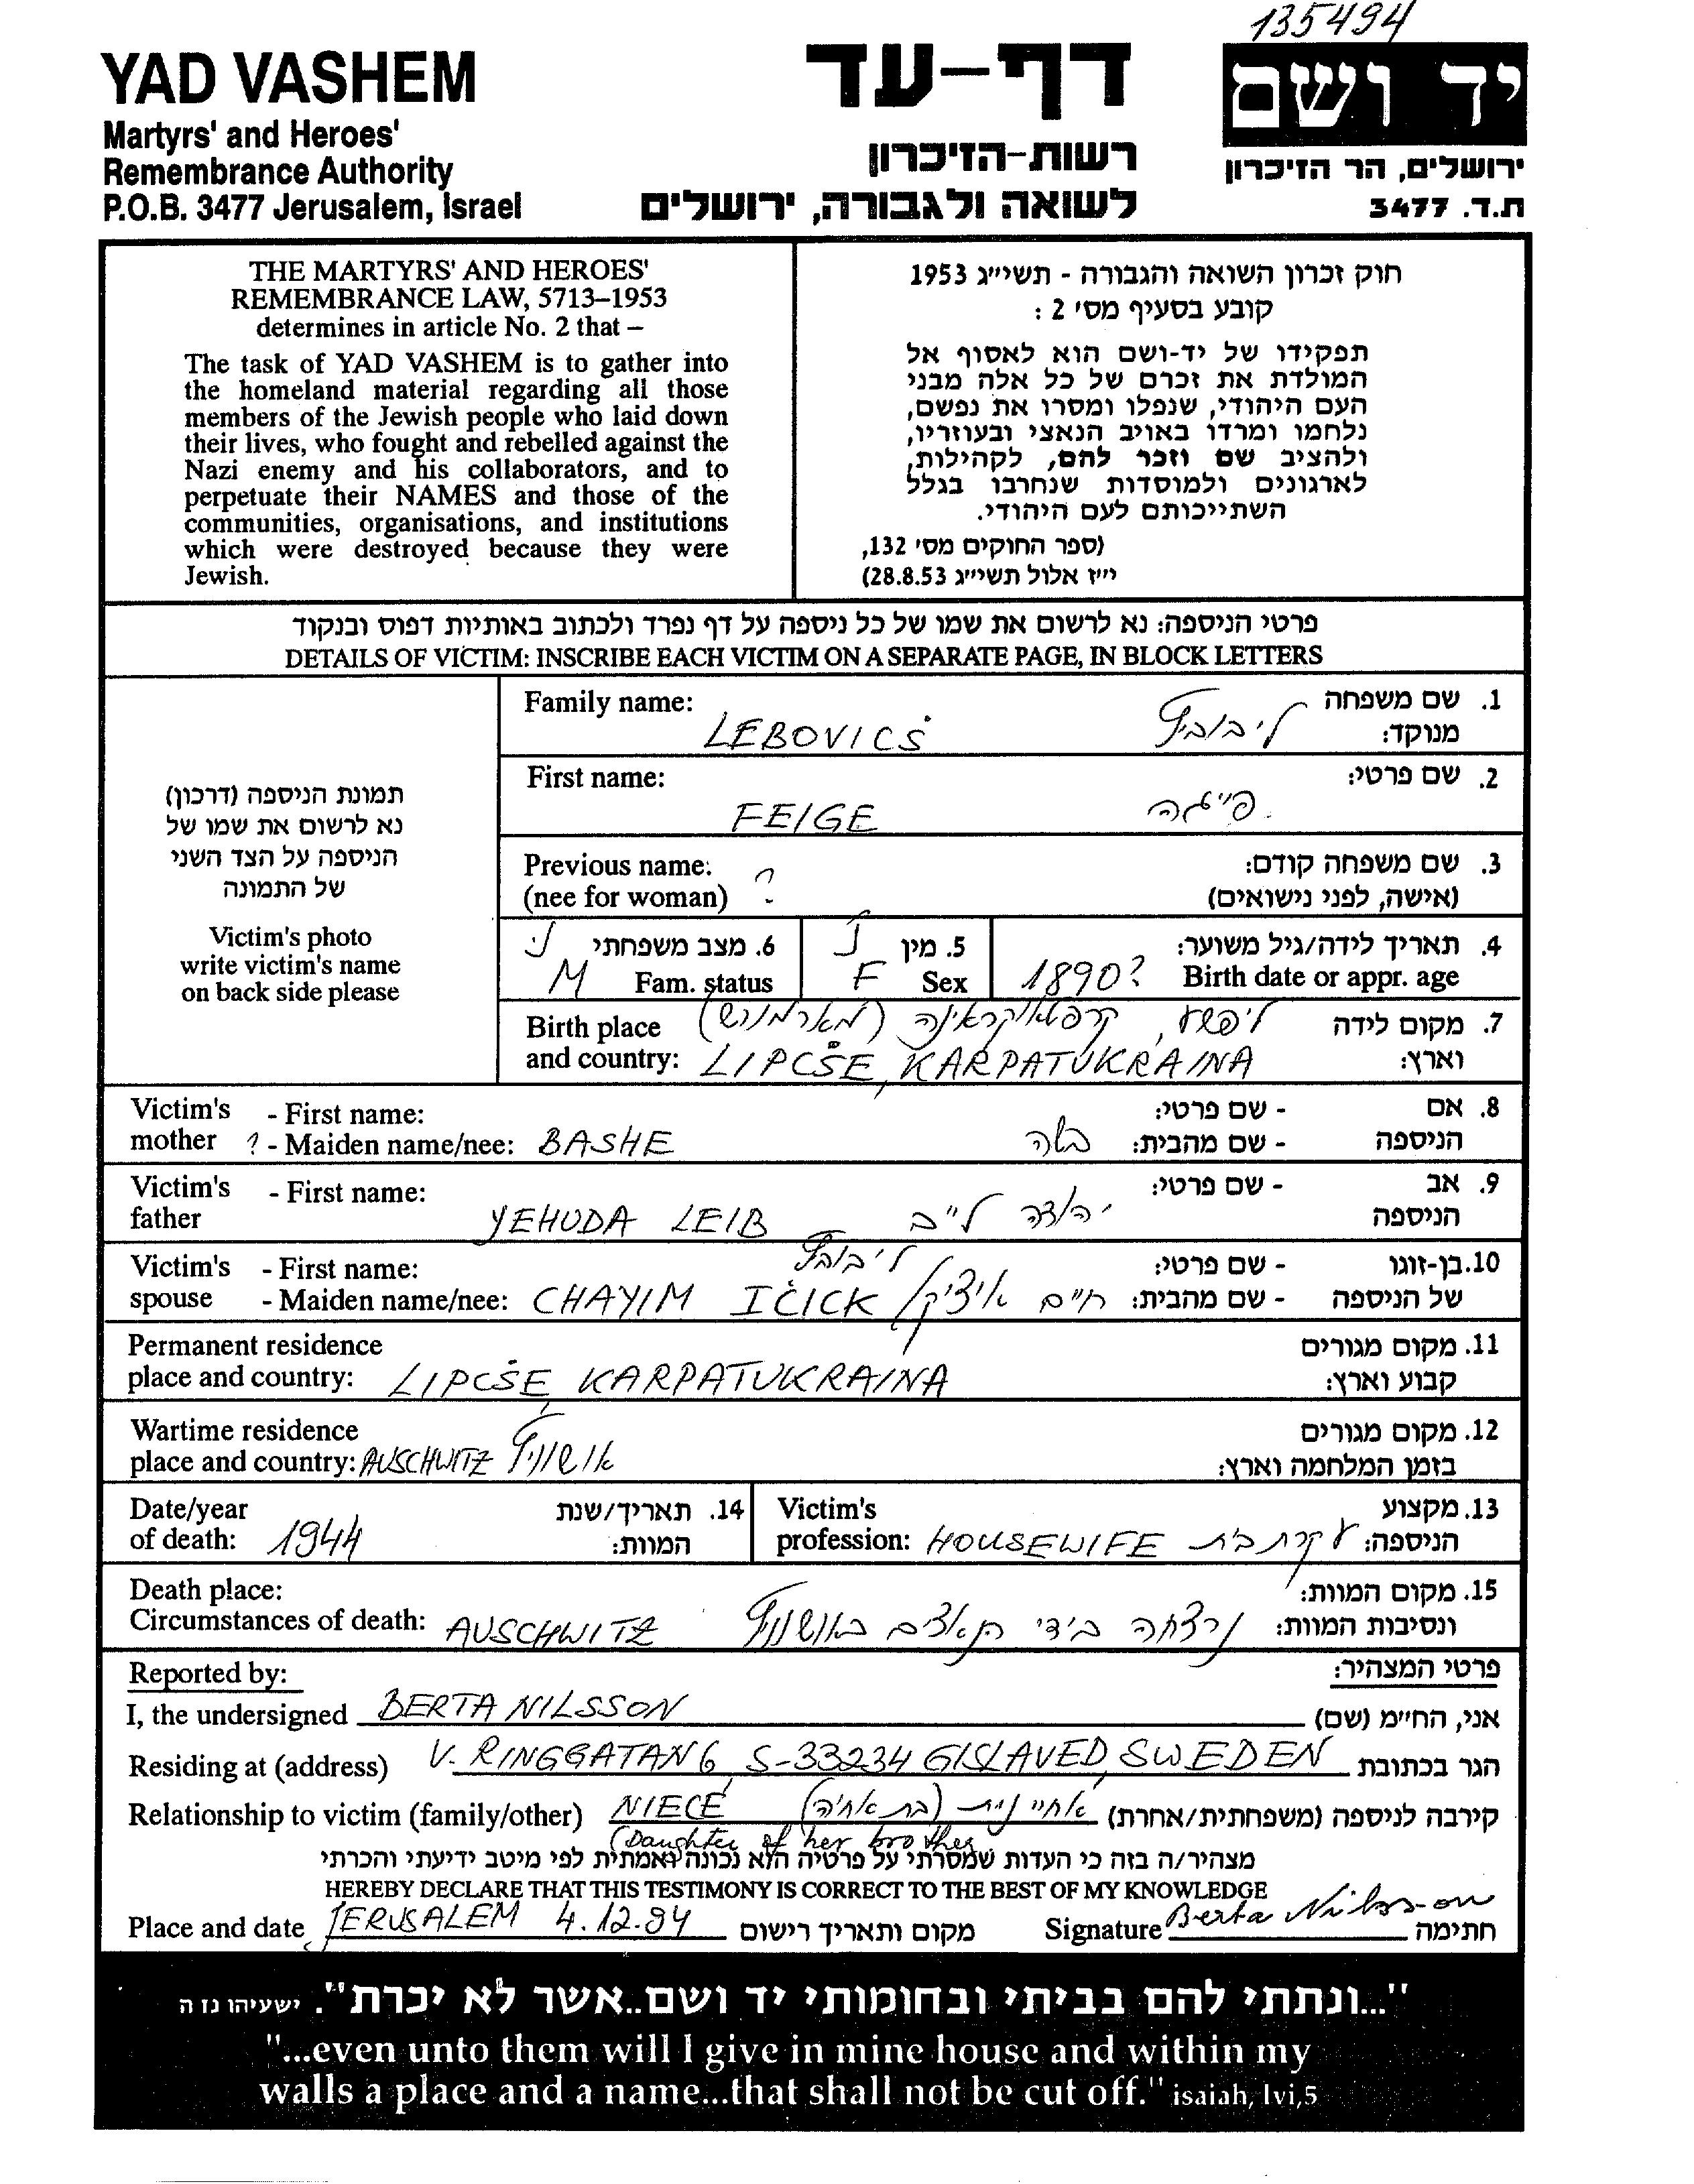 135494
YAD VASHEM
Martyrs' and Heroes'
Remembrance Authority
P.O.B. 3477 Jerusalem, Israel
דף-עד
רשות-הזיכרון
לשואה ולגבורה, ירושלים
יד ושם
ירושלים, הר הזיכרון
ת.ד. 3477
THE MARTYRS' AND HEROES'
REMEMBRANCE LAW, 5713–1953
determines in article No. 2 that –
The task of YAD VASHEM is to gather into
the homeland material regarding all those
members of the Jewish people who laid down
their lives, who fought and rebelled against the
Nazi enemy and his collaborators, and to
perpetuate their NAMES and those of the
communities, organisations, and institutions
which were destroyed because they were
Jewish.
חוק זכרון השואה והגבורה - תשי״ג 1953
קובע בסעיף מס׳ 2 :
תפקידו של יד-ושם הוא לאסוף אל
המולדת את זכרם של כל אלה מבני
העם היהודי, שנפלו ומסרו את נפשם,
נלחמו ומרדו באויב הנאצי ובעוזריו,
ולהציב שם וזכר להם, לקהילות,
לארגונים ולמוסדות שנחרבו בגלל
השתייכותם לעם היהודי.
(ספר החוקים מס׳ 132,
י״ז אלול תשי״ג 28.8.53)
פרטי הניספה: נא לרשום את שמו של כל ניספה על דף נפרד ולכתוב באותיות דפוס ובנקוד
DETAILS OF VICTIM: INSCRIBE EACH VICTIM ON A SEPARATE PAGE, IN BLOCK LETTERS
תמונת הניספה (דרכון)
נא לרשום את שמו של
הניספה על הצד השני
של התמונה
Victim's photo
write victim's name
on back side please
Family name: LEBOVICS ליבוביץ 1. שם משפחה
מנוקד:
First name: FEIGE פייגה 2. שם פרטי:
Previous name: ? 3. שם משפחה קודם:
(nee for woman) (אישה, לפני נישואים)
נ׳ 6. מצב משפחתי נ 5. מין 4. תאריך לידה/גיל משוער:
M Fam. status F Sex 1890? Birth date or appr. age
Birth place ליפשע, קרפטאוקראינה (מארמורש) 7. מקום לידה
and country: LIPCSE, KARPATUKRAINA וארץ:
Victim's - First name: - שם פרטי: 8. אם
mother ? - Maiden name/nee: BASHE בשה - שם מהבית: הניספה
Victim's - First name: - שם פרטי: 9. אב
father YEHUDA LEIB יהודה לייב הניספה
Victim's - First name: ליבוביץ - שם פרטי: 10. בן-זוגו
spouse - Maiden name/nee: CHAYIM ICICK חיים איציק - שם מהבית: של הניספה
Permanent residence 11. מקום מגורים
place and country: LIPCSE, KARPATUKRAINA קבוע וארץ:
Wartime residence 12. מקום מגורים
place and country: AUSCHWITZ אושוויץ בזמן המלחמה וארץ:
Date/year 14. תאריך/שנת Victim's 13. מקצוע
of death: 1944 המוות: profession: HOUSEWIFE עקרת בית הניספה:
Death place: 15. מקום המוות:
Circumstances of death: AUSCHWITZ נרצחה בידי הנאצים באושוויץ ונסיבות המוות:
Reported by: פרטי המצהיר:
I, the undersigned BERTA NILSSON אני, הח״מ (שם)
Residing at (address) V. RINGGATAN 6 S-33234 GISLAVED, SWEDEN הגר בכתובת
Relationship to victim (family/other) NIECE אחיינית (בת אחיה) קירבה לניספה (משפחתית/אחרת)
(Daughter of her brother
מצהיר/ה בזה כי העדות שמסרתי על פרטיה היא נכונה ואמתית לפי מיטב ידיעתי והכרתי
HEREBY DECLARE THAT THIS TESTIMONY IS CORRECT TO THE BEST OF MY KNOWLEDGE
Place and date JERUSALEM 4.12.94 מקום ותאריך רישום Signature Berta Nilsson חתימה
"...ונתתי להם בביתי ובחומותי יד ושם..אשר לא יכרת". ישעיהו נז ה
"...even unto them will I give in mine house and within my
walls a place and a name...that shall not be cut off." isaiah, lvi,5